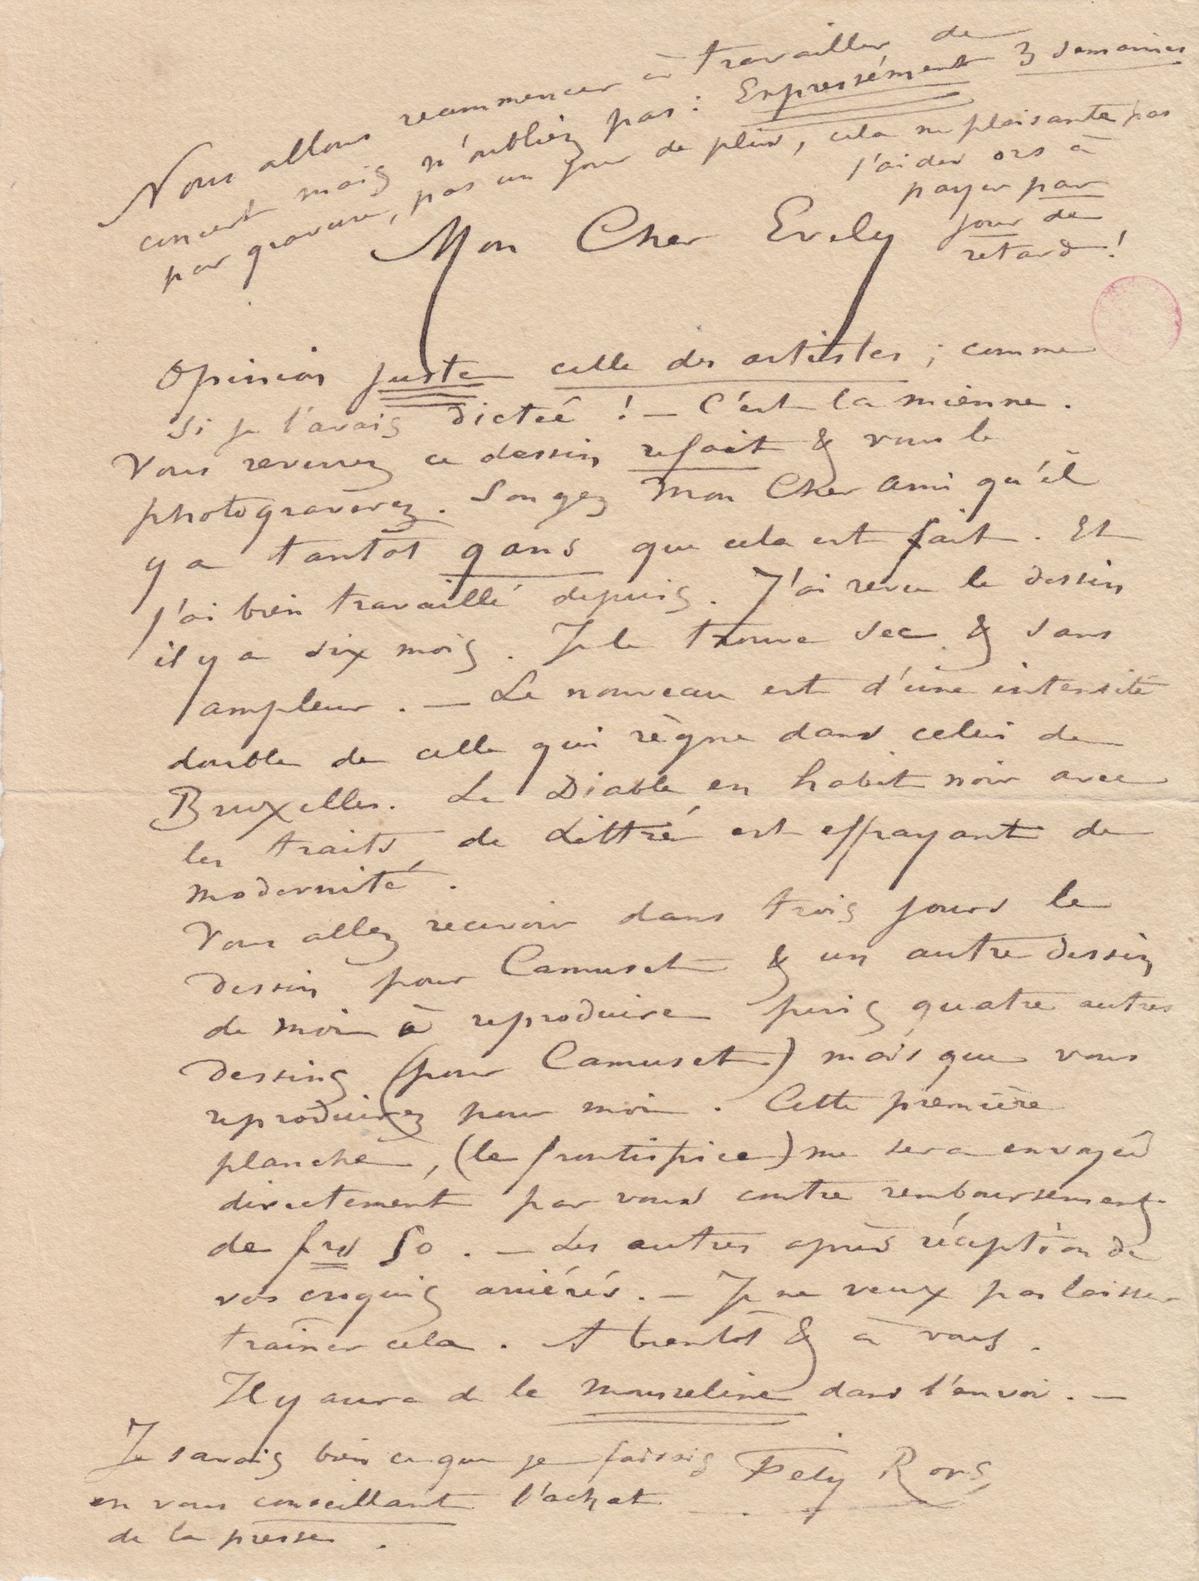 Nous allons recommencer à travailler de
concert mais n'oubliez pas : Expressément 3 semaines
par gravure, pas un jour de plus, cela ne plaisante pas
à
payer par
jour de
retard !
Mon Cher Evely
Opinion juste celle des artistes ; comme
si je l'avais dicteé ! — C'est la mienne.
Vous reverrez ce dessin refait & vous le
photograverez. Songez Mon Cher Ami qu'il
y a tantôt 9 ans que cela est fait. Et
j'ai bien travaillé depuis. J'ai revu le dessin
il y a six mois. Je le trouve sec & sans
ampleur. — Le nouveau est d'une intensité
double de celle qui règne dans celui de
Bruxelles. Le Diable en habit noir avec
les traits de Littré est effrayant de
modernité.
Vous allez recevoir dans trois jours le
dessin pour Camuset & un autre dessin
de moi à reproduire puis quatre autres
dessins (pour Camuset) mais que vous
reproduirez pour moi. Cette première
planche, (le frontispice) me sera envoyée
directement par vous contre remboursement
de frs 50. — Les autres après réception de
vos croquis arriérés. — Je ne veux pas laisser
traîner cela. A bientôt & à vous.
Il y aura de la mousseline dans l'envoi. —
Je savais bien ce que je faisais
en vous conseillant l'achat
de la presse.
Fély Rops